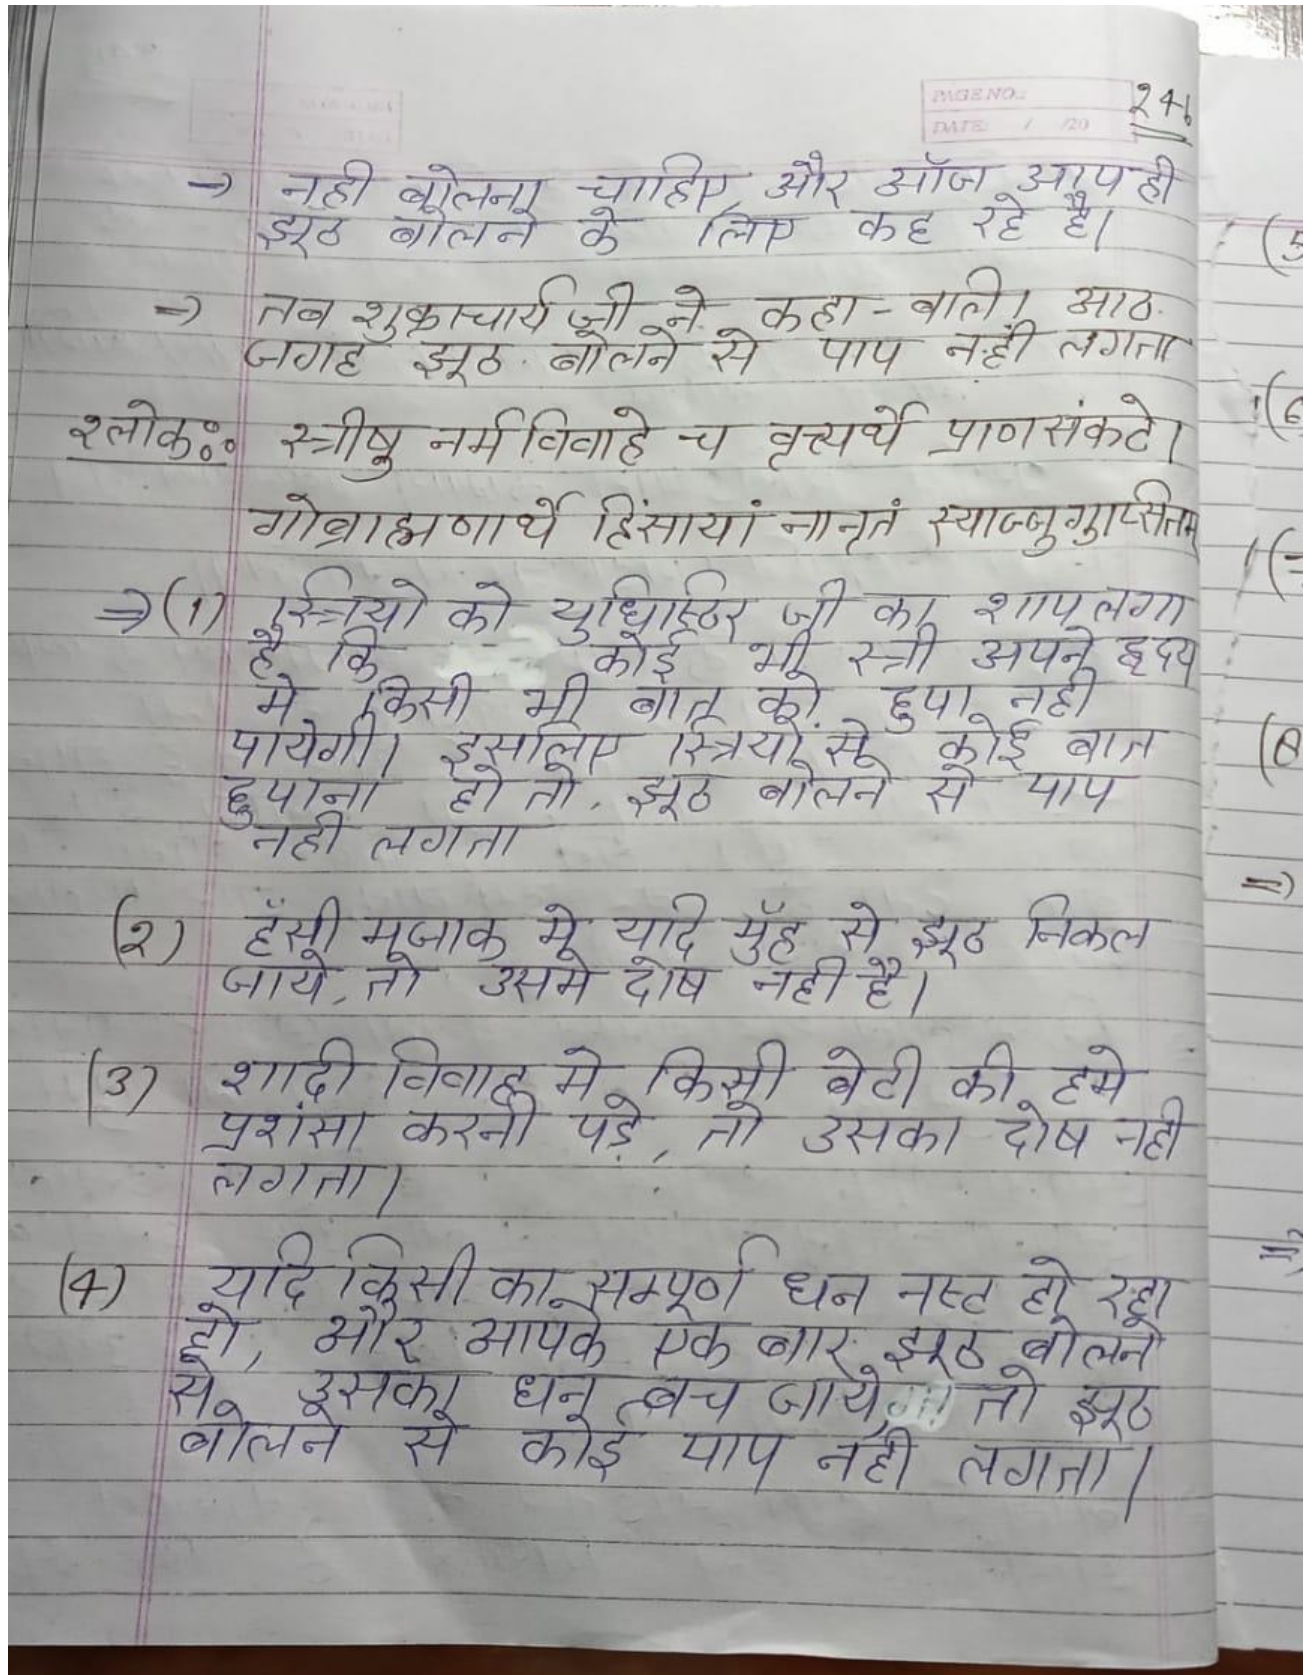 PAGE NO.:
DATE: / /20
246
→ नही बोलना चाहिए, और ऑज आप ही
झूठ बोलने के लिए कह रहे है।
⇒ तब शुक्राचार्य जी ने कहा - बलि। आठ
जगह झूठ बोलने से पाप नही लगता
श्लोकः स्त्रीषु नर्म विवाहे च वृत्त्यर्थे प्राणसंकटे।
गोब्राह्मणार्थे हिंसायां नानृतं स्याज्जुगुप्सितम्
⇒ (1) स्त्रियो को युधिष्ठिर जी का शाप लगा
है कि कोई भी स्त्री अपने हृदय
मे किसी भी बात को छुपा नही
पायेगी। इसलिए स्त्रियो से कोई बात
छुपाना हो तो, झूठ बोलने से पाप
नही लगता
(2) हँसी मजाक मे यदि मुँह से झूठ निकल
जाये, तो उसमे दोष नही है।
(3) शादी विवाह मे किसी बेटी की हमे
प्रशंसा करनी पड़े, तो उसका दोष नही
लगता।
(4) यदि किसी का सम्पूर्ण धन नष्ट हो रहा
हो, और आपके एक बार झूठ बोलने
से उसका धन बच जाये, तो झूठ
बोलने से कोई पाप नही लगता।